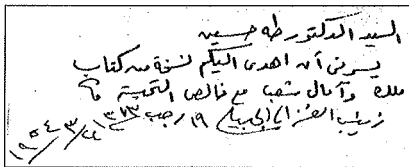 السيد الدكتور طه حسين
يسرني أن اهدى اليكم نسخة من كتاب
ملك وآمال شعب مع خالص التحية
زينب الغزالي الجبيلي ١٩ رجب ١٣٧٣
١٩٥٤/٣/٢٤